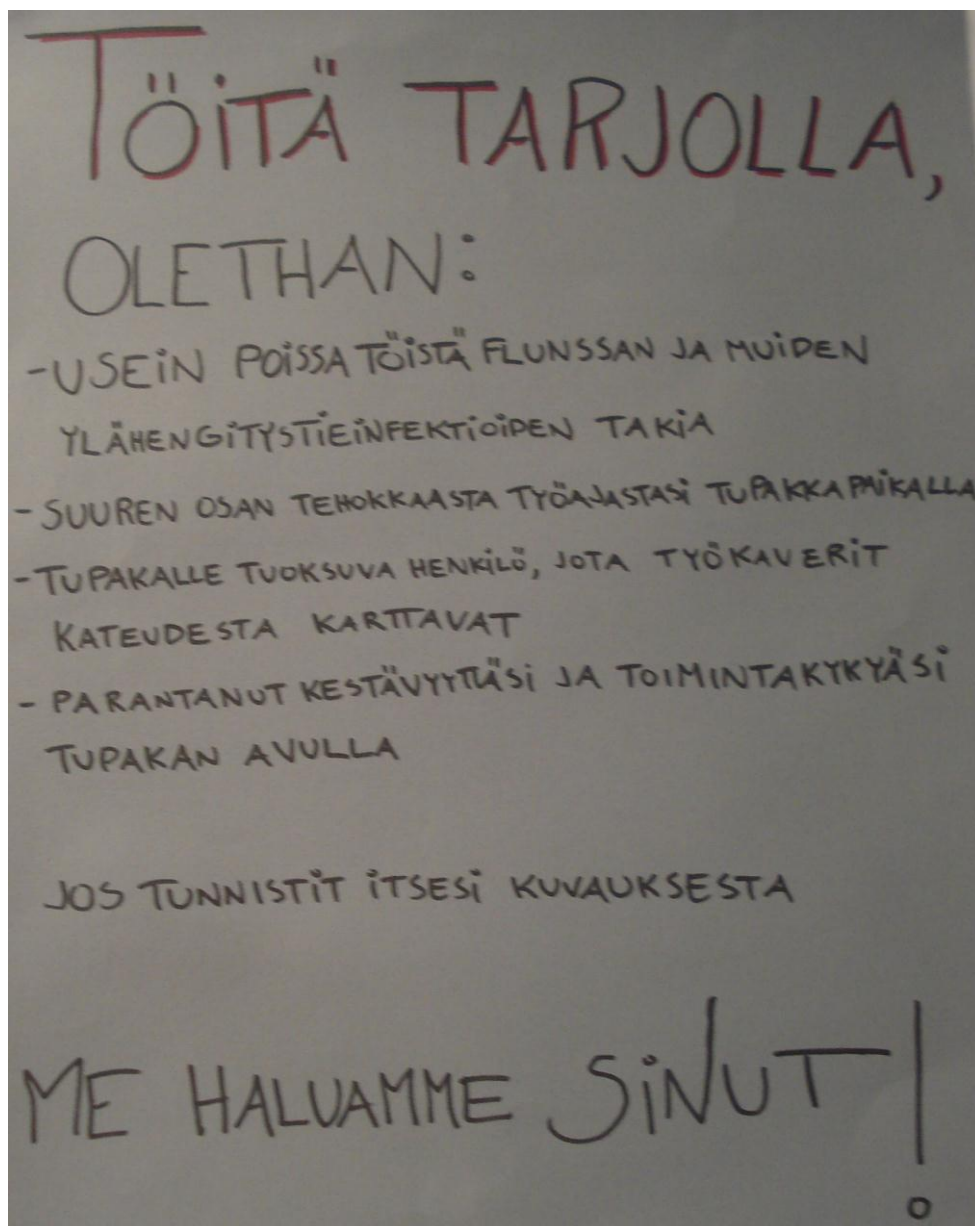 TÖITÄ TARJOLLA,
OLETHAN:
-USEIN POISSA TÖISTÄ FLUNSSAN JA MUIDEN
YLÄHENGITYSTIEINFEKTIOIDEN TAKIA
- SUUREN OSAN TEHOKKAASTA TYÖAJASTASI TUPAKKAPAIKALLA
-TUPAKALLE TUOKSUVA HENKILÖ, JOTA TYÖKAVERIT
KATEUDESTA KARTTAVAT
- PARANTANUT KESTÄVYYTTÄSI JA TOIMINTAKYKYÄSI
TUPAKAN AVULLA
JOS TUNNISTIT ITSESI KUVAUKSESTA
ME HALUAMME SINUT!